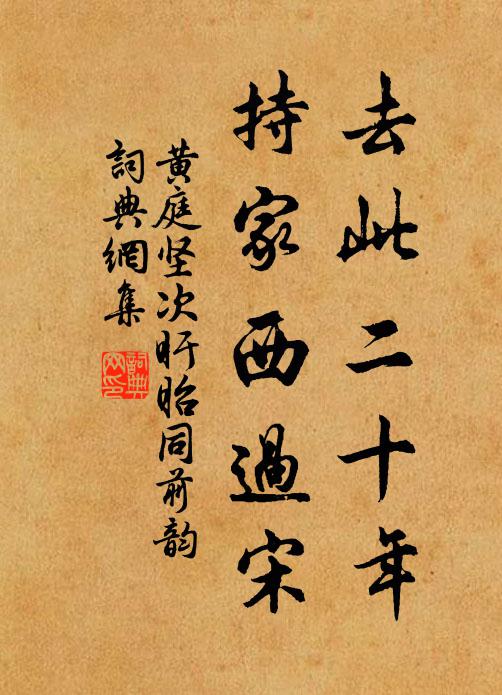 去此二十年
持家西過宋
黄庭坚次盱眙同前韵
詞典網集
詞典網印